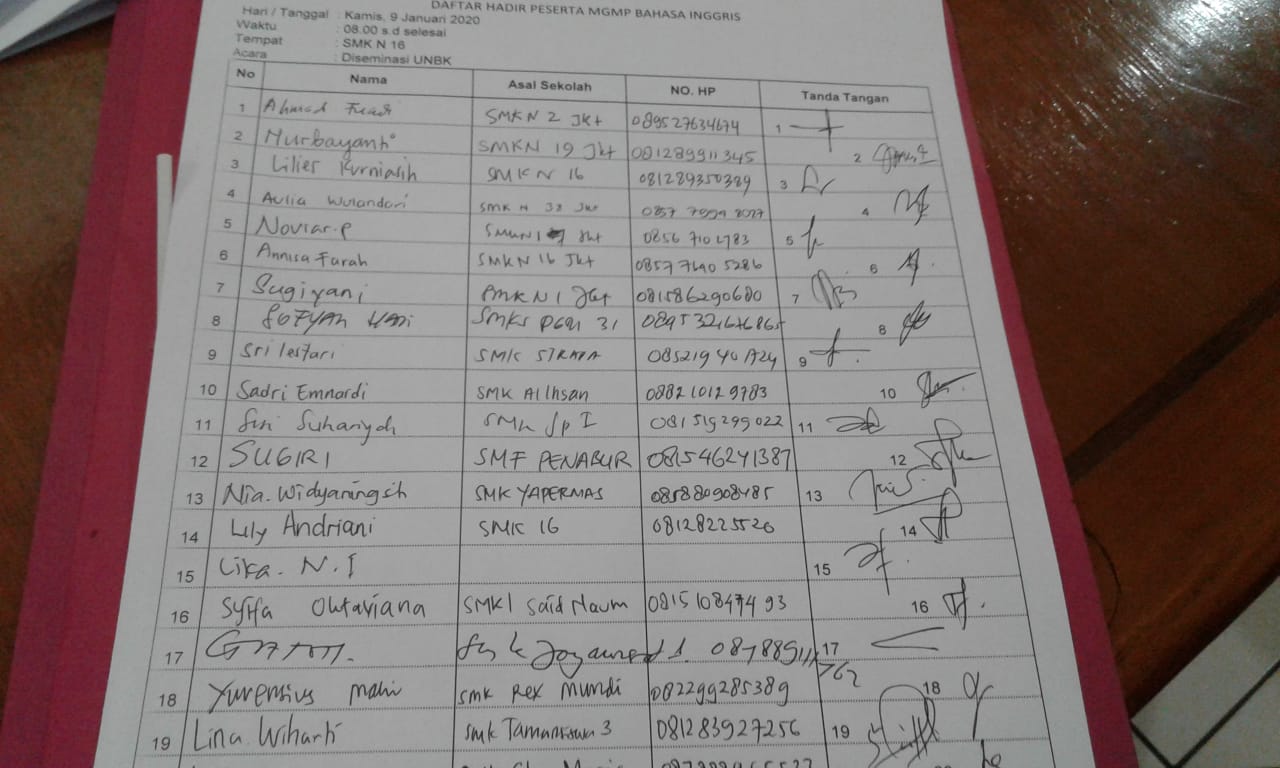 DAFTAR HADIR PESERTA MGMP BAHASA INGGRIS
Hari / Tanggal : Kamis, 9 Januari 2020
Waktu : 08.00 s.d selesai
Tempat : SMK N 16
Acara : Diseminasi UNBK
No Nama Asal Sekolah NO. HP Tanda Tangan
1 Ahmad Fuadi SMKN 2 Jkt 089527634674 1
2 Nurbayanti SMKN 19 Jkt 081289911345 2
3 Lilies Kurniasih SMKN 16 081289350389 3
4 Aulia Wulandari SMK N 38 Jkt 0857 4
5 Noviar.P Jkt 0856 710 2783 5
6 Annisa Farah SMKN 16 Jkt 0857 7690 5286 6
7 Sugiyani SMKN 1 Jkt 081586290680 7
8 SOFYAN HADI SMKS PGRI 31 8
9 Sri lestari SMK 9
10 Sadri Emnardi SMK Al Ihsan 0882 10129783 10
11 Suharyah SMK 081519299022 11
12 SUGIRI PENABUR 081546241387 12
13 Nia. Widyaningsih SMK YAPERMAS 085880908485 13
14 Lily Andriani SMK 16 08128225526 14
15 Lika. N.I 15
16 Syifa Oktaviana SMK I Said Naum 0815 108474 93 16
17 17
18 SMK Rex Mundi 082299285389 18
19 Lina Wiharti SMK Tamansiswa 3 081283927256 19